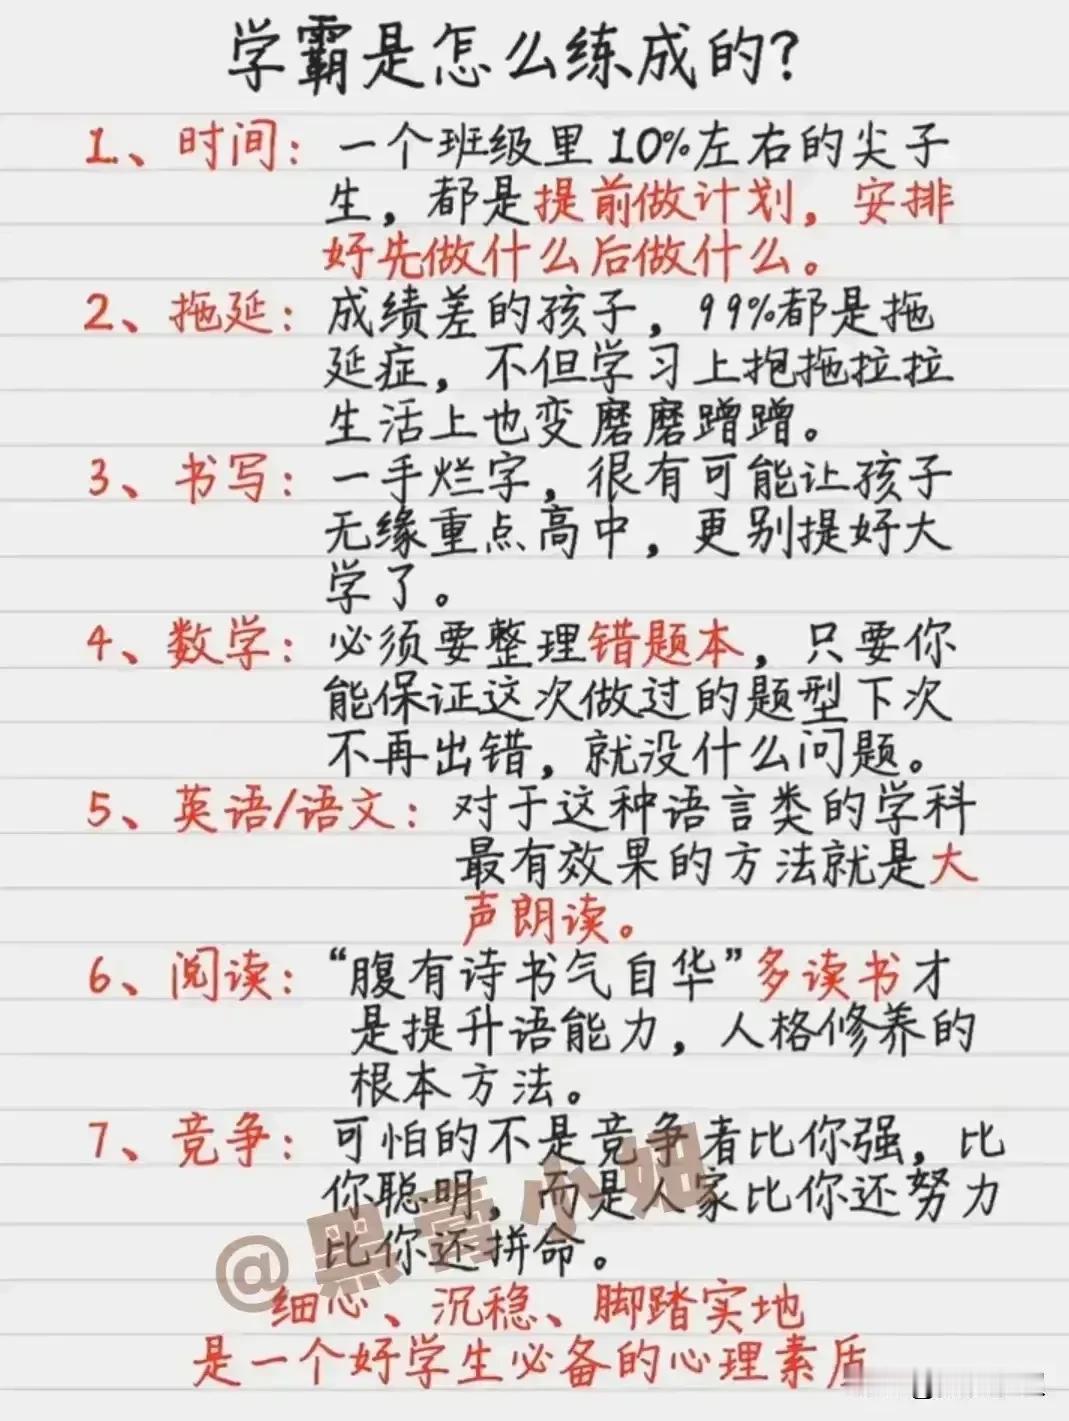 学霸是怎么练成的?
1、时间：一个班级里10%左右的尖子
生，都是提前做计划，安排
好先做什么后做什么。
2、拖延：成绩差的孩子，99%都是拖
延症，不但学习上抱拖拉拉
生活上也变磨磨蹭蹭。
3、书写：一手烂字，很有可能让孩子
无缘重点高中，更别提好大
学了。
4、数学：必须要整理错题本，只要你
能保证这次做过的题型下次
不再出错，就没什么问题。
5、英语/语文：对于这种语言类的学科
最有效果的方法就是大
声朗读。
6、阅读：“腹有诗书气自华”多读书才
是提升语能力，人格修养的
根本方法。
7、竞争：可怕的不是竞争者比你强，比
你聪明，而是人家比你还努力
比你还拼命。
@黑膏小姐
细心、沉稳、脚踏实地
是一个好学生必备的心理素质